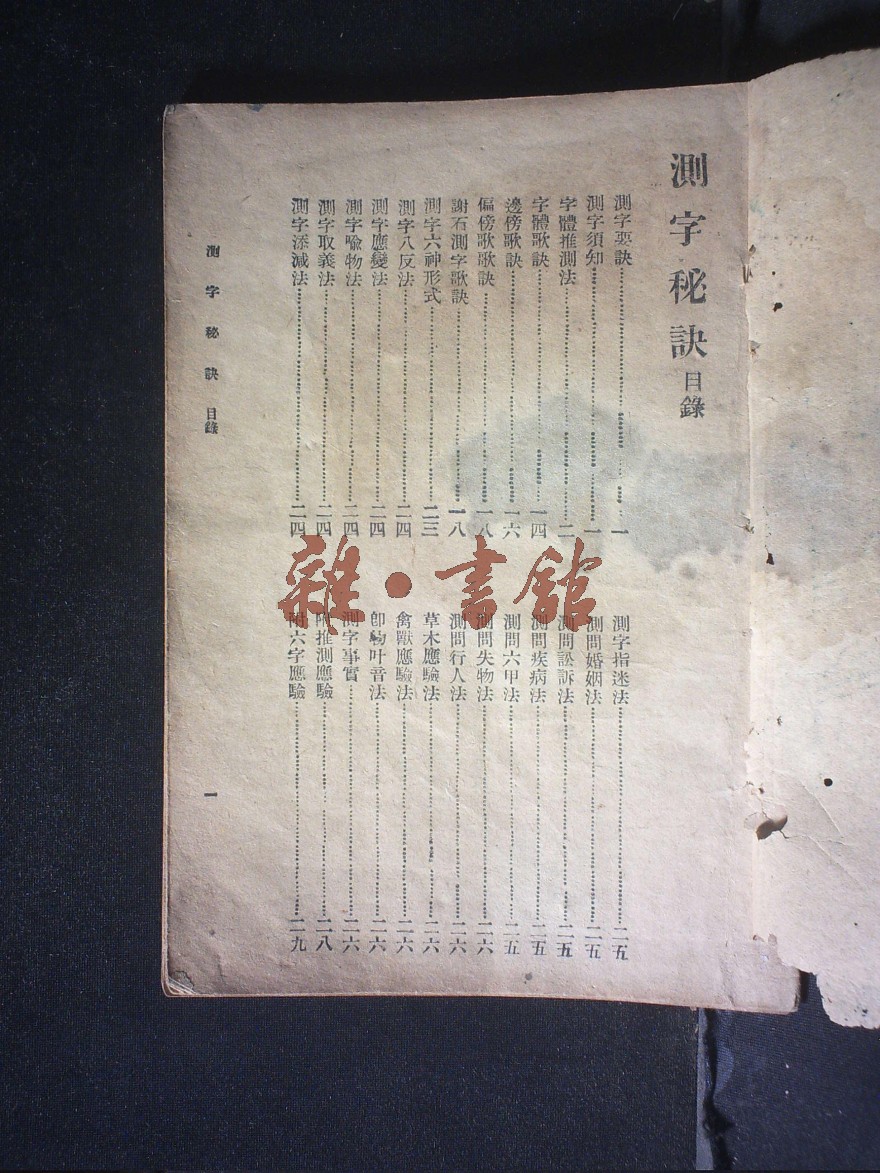 測字秘訣目錄
測字要訣……一
測字須知……一
字體推測法……二
字體歌訣……一四
邊傍歌訣……一六
偏傍歌歌訣……一八
謝石測字歌訣……一八
測字六神形式……二三
測字八反法……二四
測字應變法……二四
測字喻物法……二四
測字取義法……二四
測字添減法……二四
測字指迷法……二五
測問婚姻法……二五
測問訟訴法……二五
測問疾病法……二五
測問六甲法……二五
測問失物法……二六
測問行人法……二六
草木應驗法……二六
禽獸應驗法……二六
卽物叶音法……二六
測字事實……二六
附推測應驗……二八
附六字應驗……二九
測字秘訣 目錄
一
雜·書館